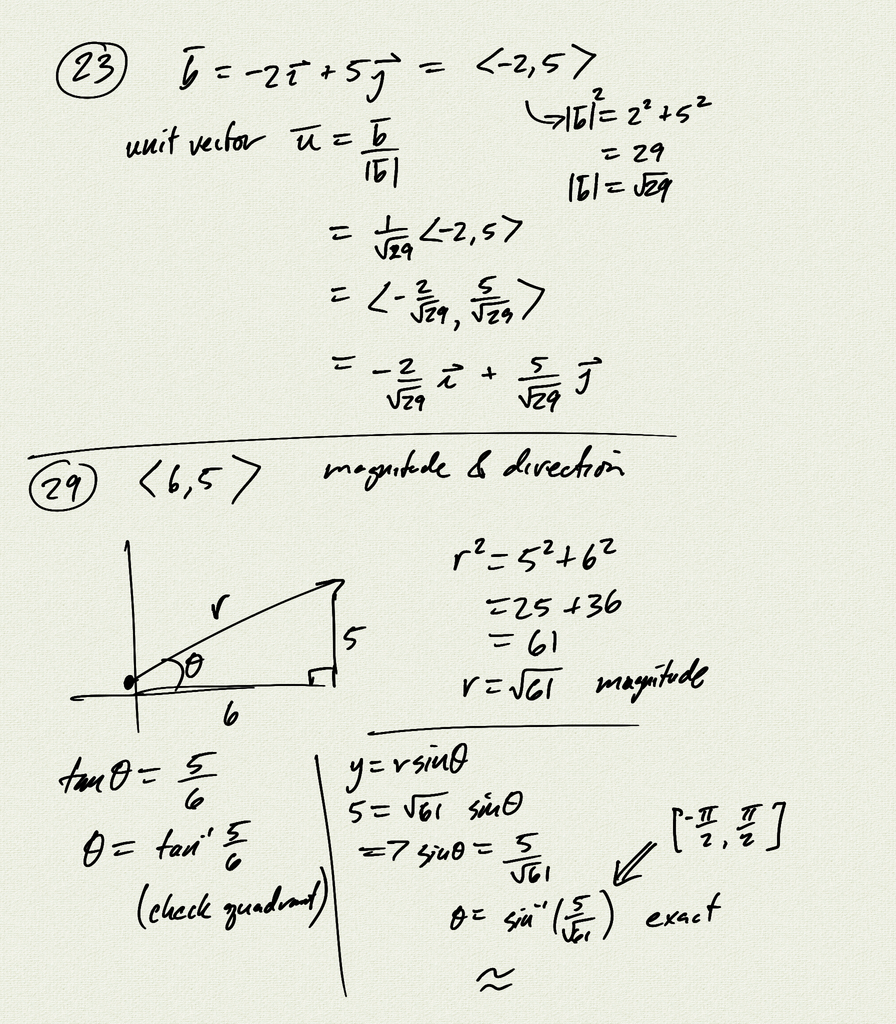 23 b̅ = -2i⃗ + 5j⃗ = <-2, 5>
↳ |b̅|² = 2² + 5²
= 29
|b̅| = √29
unit vector u̅ = b̅/|b̅|
= 1/√29 <-2, 5>
= <-2/√29, 5/√29>
= -2/√29 i⃗ + 5/√29 j⃗
29 <6, 5> magnitude & direction
r
θ
5
6
r² = 5² + 6²
= 25 + 36
= 61
r = √61 magnitude
tan θ = 5/6
θ = tan⁻¹ 5/6
(check quadrant)
y = r sin θ
5 = √61 sin θ
=> sin θ = 5/√61
[-π/2, π/2]
θ = sin⁻¹(5/√61) exact
≈